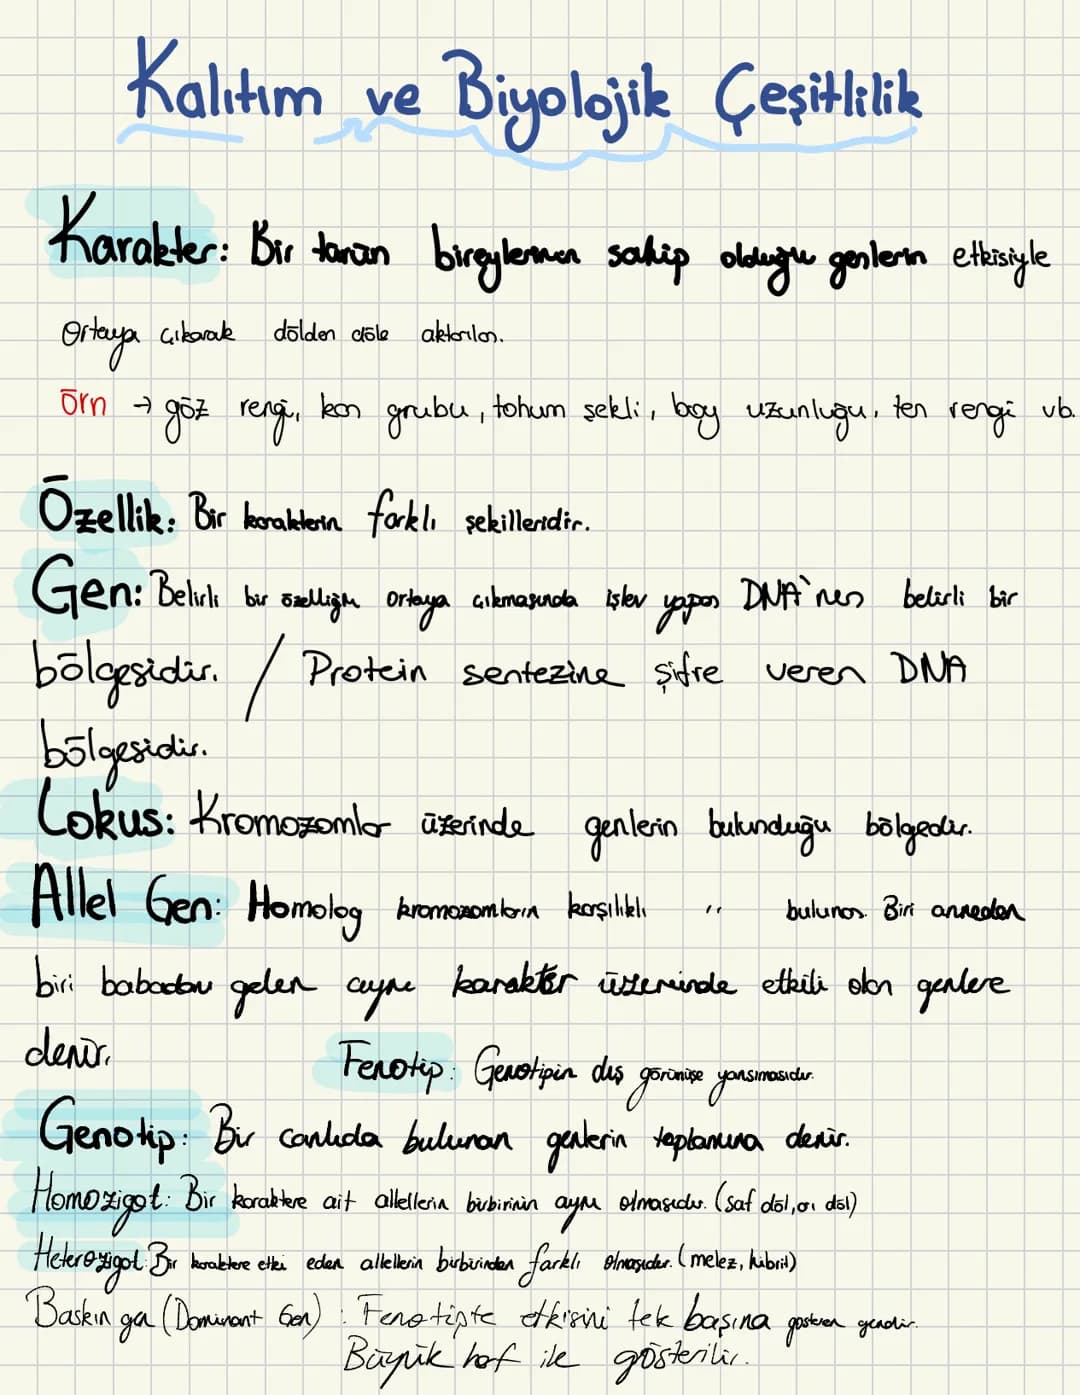 Kalıtım ve Biyolojik Çeşitlilik
Karakter: Bir türün bireylerinin sahip olduğu genlerin etkisiyle
Ortaya çıkarak dölden döle aktarılır.
Örn → göz rengi, kan grubu, tohum şekli, boy uzunluğu, ten rengi vb.
Özellik: Bir karakterin farklı şekilleridir.
Gen: Belirli bir özelliğin ortaya çıkmasında işlev yapan DNA'nın belirli bir
bölgesidir. / Protein sentezine şifre veren DNA
bölgesidir.
Lokus: Kromozomlar üzerinde genlerin bulunduğu bölgedir.
Allel Gen: Homolog kromozomların karşılıklı " bulunan. Biri anneden
biri babadan gelen aynı karakter üzerinde etkili olan genlere
denir.
Fenotip: Genotipin dış görünüşe yansımasıdır.
Genotip: Bir canlıda bulunan genlerin toplamına denir.
Homozigot: Bir karaktere ait allellerin birbirinin aynı olmasıdır. (saf döl, arı döl)
Heterozigot: Bir karaktere etki eden allellerin birbirinden farklı olmasıdır. (melez, hibrit)
Baskın gen (Dominant Gen) : Fenotipte etkisini tek başına gösteren gendir.
Büyük harf ile gösterilir.